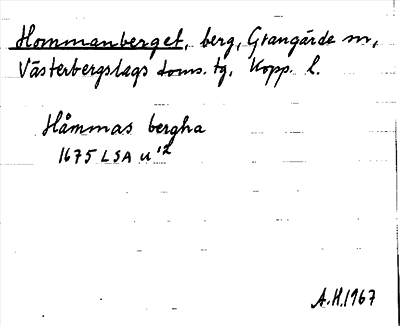 Hommanberget, berg, Grangärde sn,
Västerbergslags doms. tg, Kopp. l.
Håmmas bergha
1675 LSA U'12
A.H. 1967